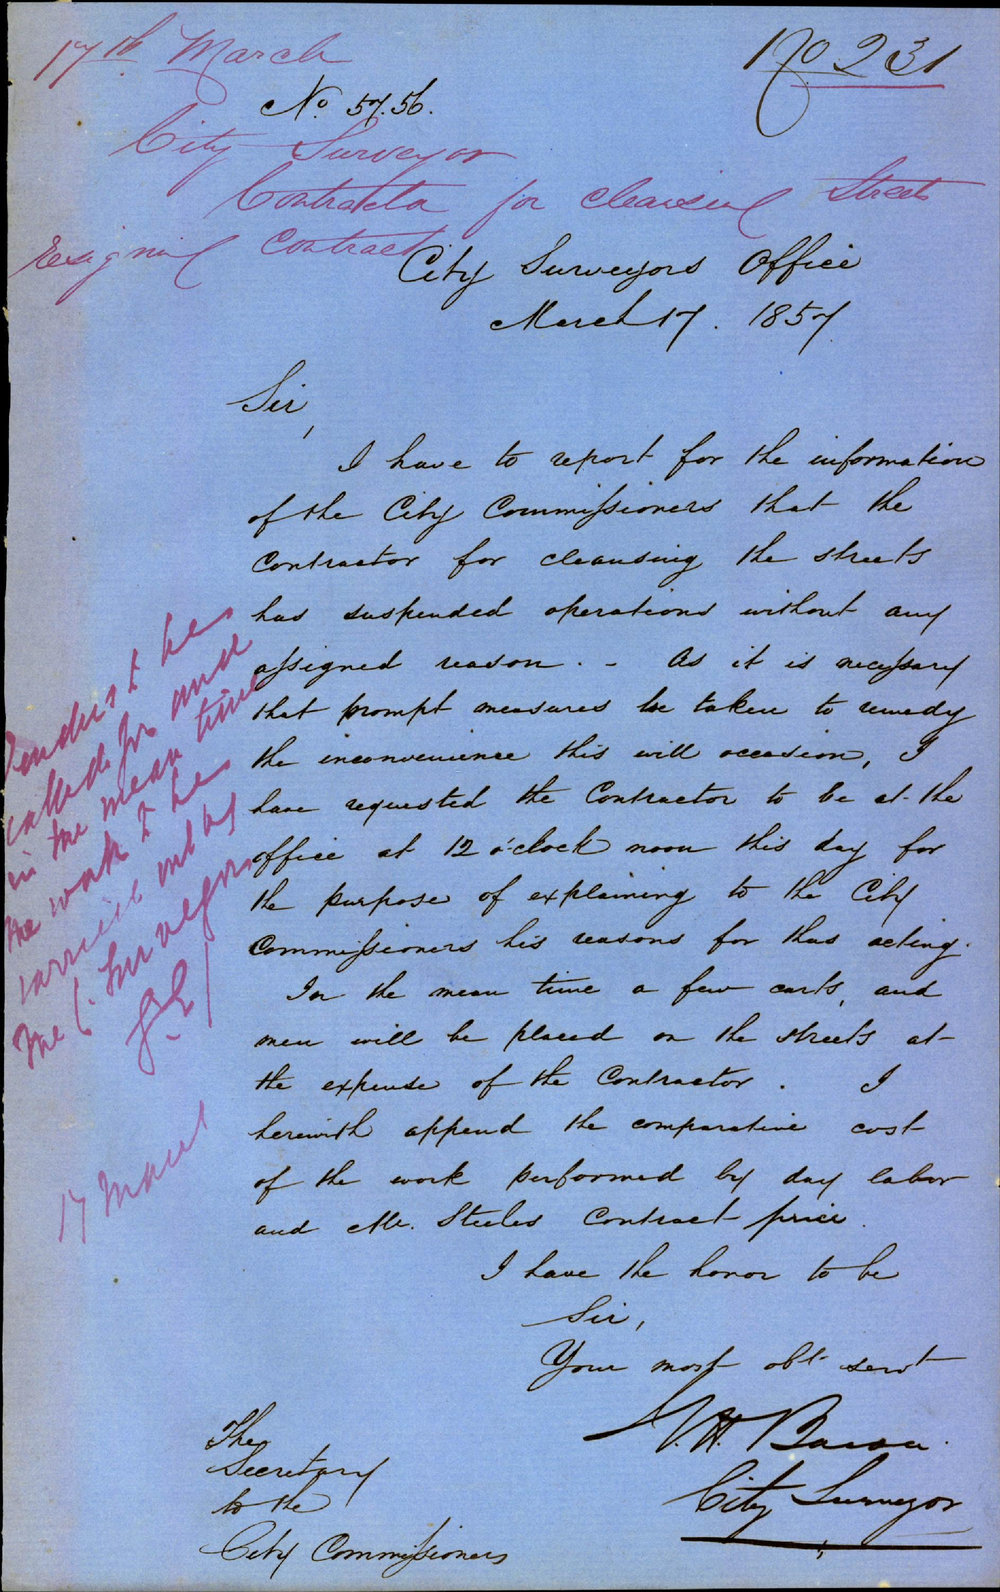 17th March
No 231
No. 57.56.
City Surveyor
Contractor for cleansing Streets
resigning Contract
City Surveyors Office
March 17. 1857
Sir,
I have to report for the information
of the City Commissioners that the
Contractor for cleansing the streets
has suspended operations without any
assigned reason. - As it is necessary
that prompt measures be taken to remedy
the inconvenience this will occasion, I
have requested the Contractor to be at the
office at 12 o'clock noon this day for
the purpose of explaining to the City
Commissioners his reasons for thus acting.
In the mean time a few carts, and
men will be placed on the streets at
the expense of the Contractor. I
herewith append the comparative cost
of the work performed by day labor
and Mr. Steeles Contract price.
I have the honor to be
Sir,
Your most obt servt
City Surveyor
The
Secretary
to the
City Commissioners
Tenders to be
called for and
in the mean time
the work to be
carried out by
the C. Surveyor
17 March